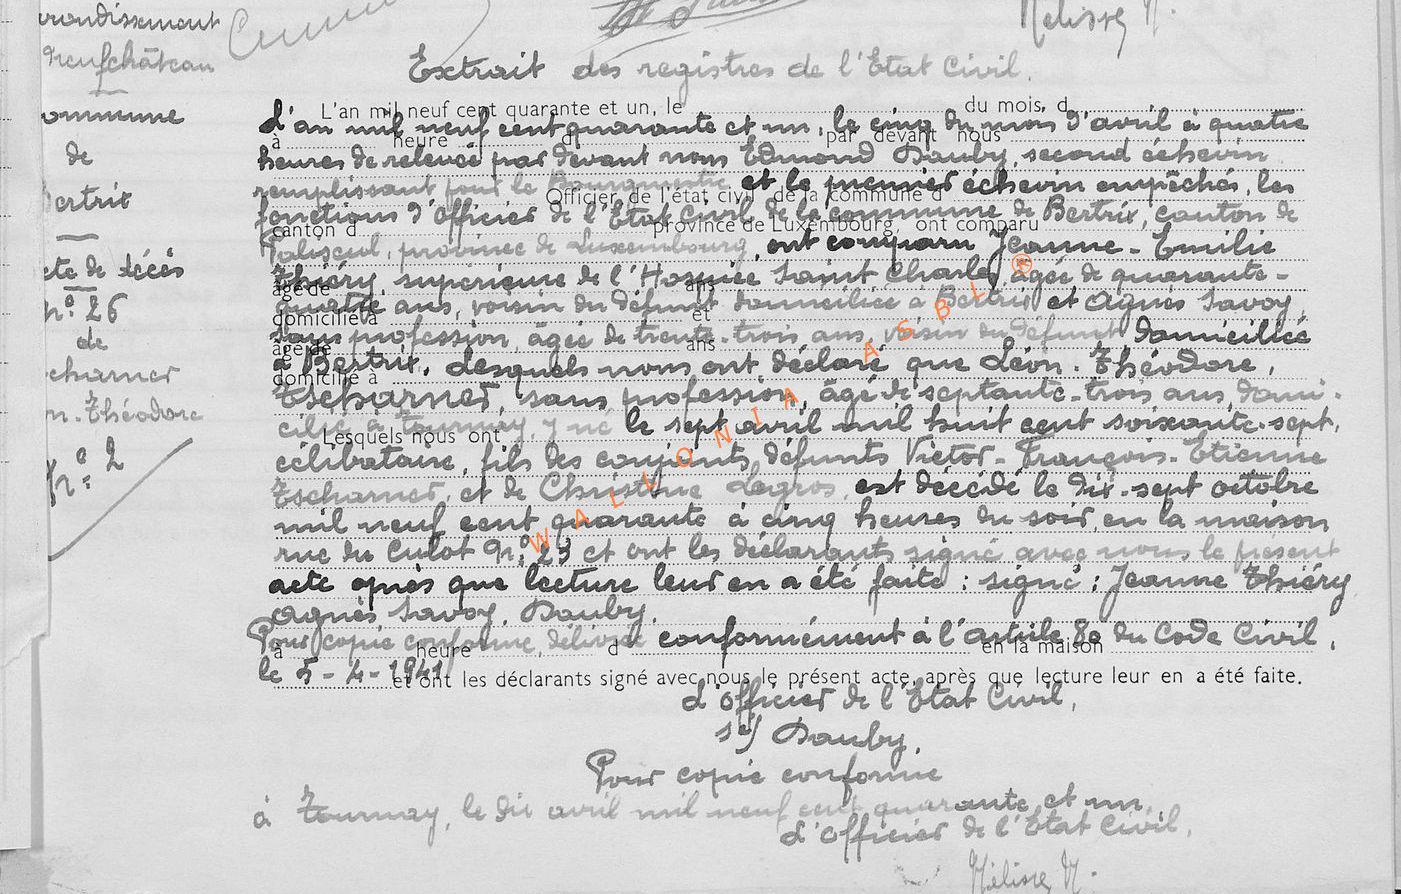 Mélisse N.
Extrait des registres de l'Etat Civil.
rondissement
Neufchâteau
ommune
de
Bertrix
cte de décès
n° 26
de
scharner
n. Théodore
n° 2
L'an mil neuf cent quarante et un, le du mois, d
L'an mil neuf cent quarante et un, le cinq du mois d'avril à quatre
à heure d par devant nous
heures de relevée par devant nous Edmond Dauby, second échevin
remplissant pour le Bourgmestre et le premier échevin empêchés, les
Officier de l'état civil de la commune d
fonctions d'officier de l'Etat Civil de la commune de Bertrix, canton de
canton d province de Luxembourg, ont comparu
Paliseul, province de Luxembourg, ont comparu Jeanne-Emilie
Thiéry, supérieure de l'Hospice Saint Charles, âgée de quarante-
âgé de ans
quatre ans, voisin du défunt domiciliée à Bertrix et Agnès Savoy,
domicilié à et
sans profession, âgée de trente-trois ans, voisin du défunt domiciliée
âgé de ans
à Bertrix. Lesquels nous ont déclaré que Léon-Théodore,
domicilié à
Tscharner, sans profession, âgé de septante-trois ans, domi-
cilié à Tournay, y né le sept avril mil huit cent soixante-sept,
Lesquels nous ont
célibataire, fils des conjoints défunts Victor-François-Etienne
Tscharner, et de Christine Legros, est décédé le dix-sept octobre
mil neuf cent quarante à cinq heures du soir, en la maison
rue du Culot n° 23 et ont les déclarants signé avec nous le présent
acte après que lecture leur en a été faite : signé : Jeanne Thiéry
Agnès Savoy, Dauby.
Pour copie conforme, délivrée conformément à l'article 80 du Code Civil,
à heure d en la maison
le 5-4-1941
et ont les déclarants signé avec nous le présent acte, après que lecture leur en a été faite.
L'officier de l'Etat Civil,
s/ Dauby.
Pour copie conforme
à Tournay, le dix avril mil neuf cent quarante et un.
L'officier de l'Etat Civil,
Mélisse N.
WALLONIA ASBL